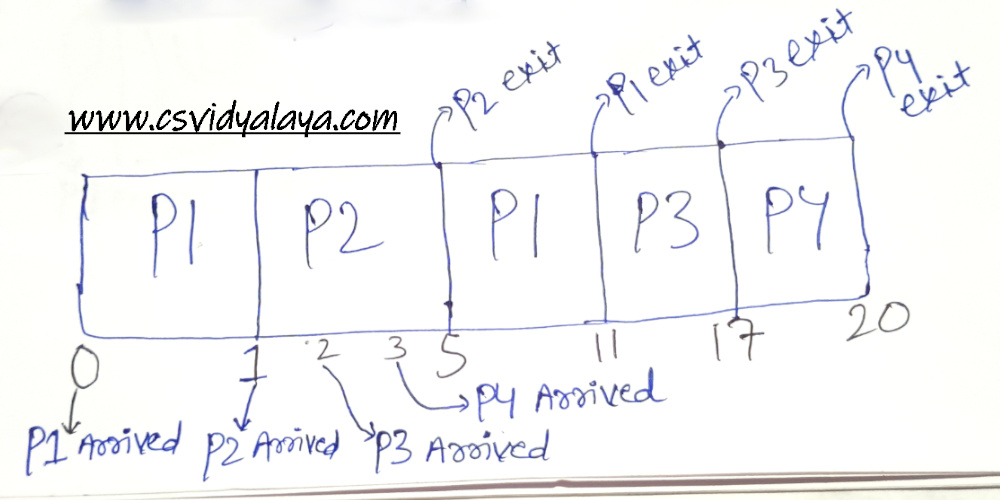 www.csvidyalaya.com
P2 exit
P1 exit
P3 exit
P4
exit
P1 P2 P1 P3 P4
0 1 2 3 5 11 17 20
P4 Arrived
P1 Arrived P2 Arrived P3 Arrived